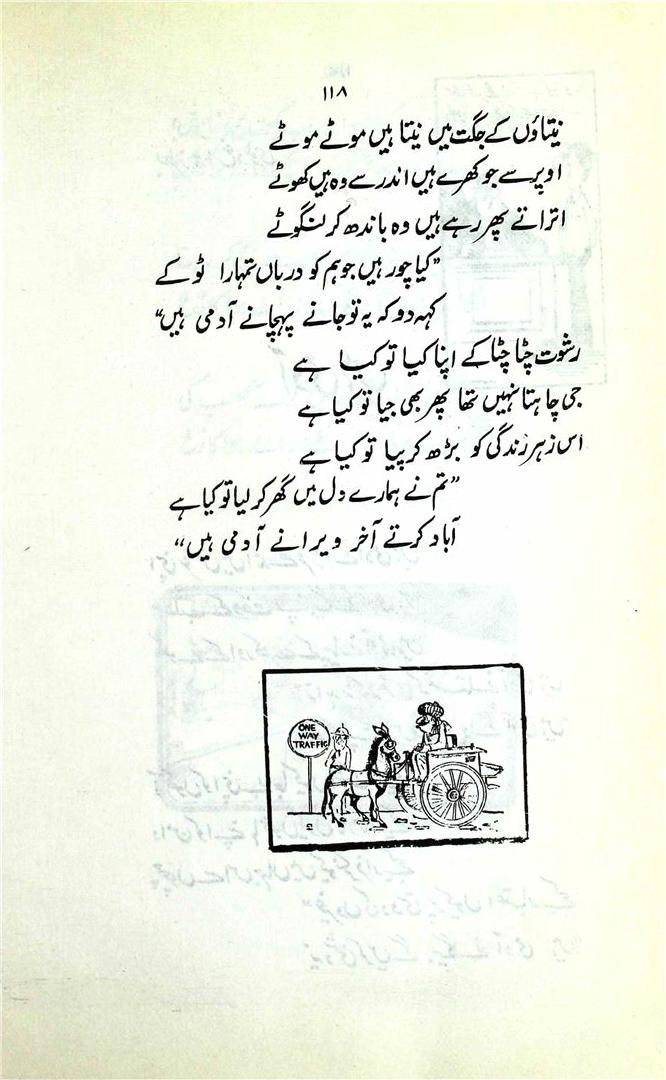 ۱۱۸
نیتاؤں کے جگت میں نیتا ہیں موٹے موٹے
اوپر سے جو کھرے ہیں اندر سے وہ ہیں کھوٹے
اتراتے پھر رہے ہیں وہ باندھ کر لنگوٹے
”کیا چور ہیں جو ہم کو درباں تمہارا ٹوکے
کہہ دو کہ یہ تو جانے پہچانے آدمی ہیں“
رشوت چٹا چٹا کے اپنا کیا تو کیا ہے
جی چاہتا نہیں تھا پھر بھی جیا تو کیا ہے
اس زہر زندگی کو بڑھ کر پیا تو کیا ہے
”تم نے ہمارے دل میں گھر کر لیا تو کیا ہے
آباد کرتے آخر ویرانے آدمی ہیں“
ONE
WAY
TRAFFIC